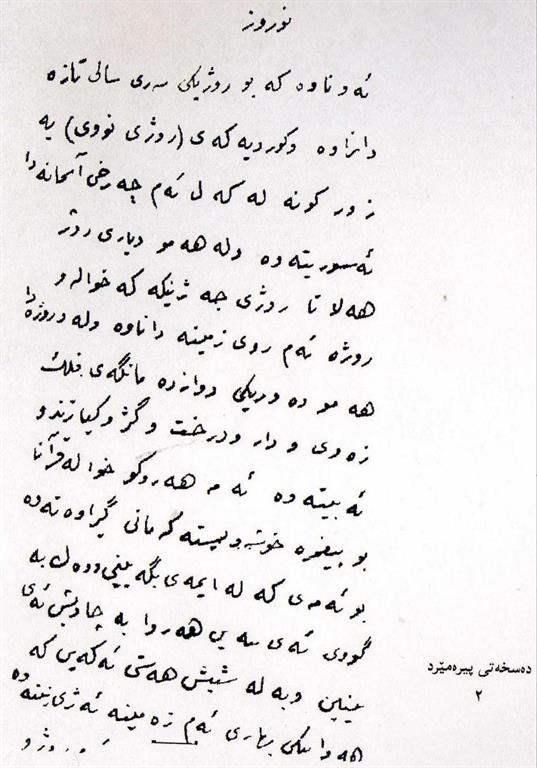 نوروز
ئەو ناوە کە بو روژیکی سەری سالی تازە
دانراوە وکوردیە کەی (روژی نووی) یە
زور کونە لە کەل ئەم چەرخی آسمانەدا
ئەسوریتەوە ولە هەمو دیاری روژ
هەلا تا روژی جەژنیکە کە خوالەو
روژە ئەم روی زمینە داناوە ولەو روژەدا
هەمو دەوریکی دوازدە مانگەی فلك
زەوی و دار ودرخت و گژوکیا زندو
ئەبیتەوە ئەمە هەروکو خوا لە قرآنا
بو پیغمبرە خوشەویستەکەمانی گیراوەتەوە
بو ئەمەی کە لە ایمەی بگەیینی ووەل بە
گووی ئەی بەیین هەروا بە چاویش ئەی
بینین وبە لەشیش هەستی ئەکەین کە
هەوایکی بهاری ئەم زەمینە ئەژیینتەوە
روژو
دەسخەتی پیرەمێرد
٢